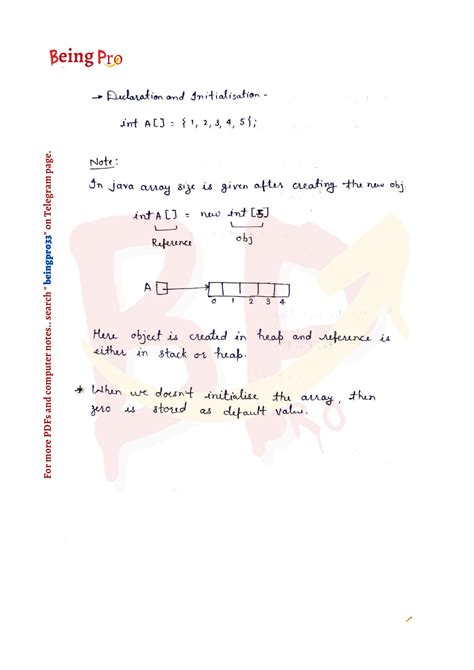 Being Pro
→ Declaration and Initialisation -
int A[] = {1, 2, 3, 4, 5};
Note:
In java array size is given after creating the new obj.
int A[] = new int[5]
Reference obj
A
0 1 2 3 4
Here object is created in heap and reference is
either in stack or heap.
* When we doesn't initialise the array, then
zero is stored as default value.
For more PDFs and computer notes.. search "beingpro33" on Telegram page.
BP
PRO